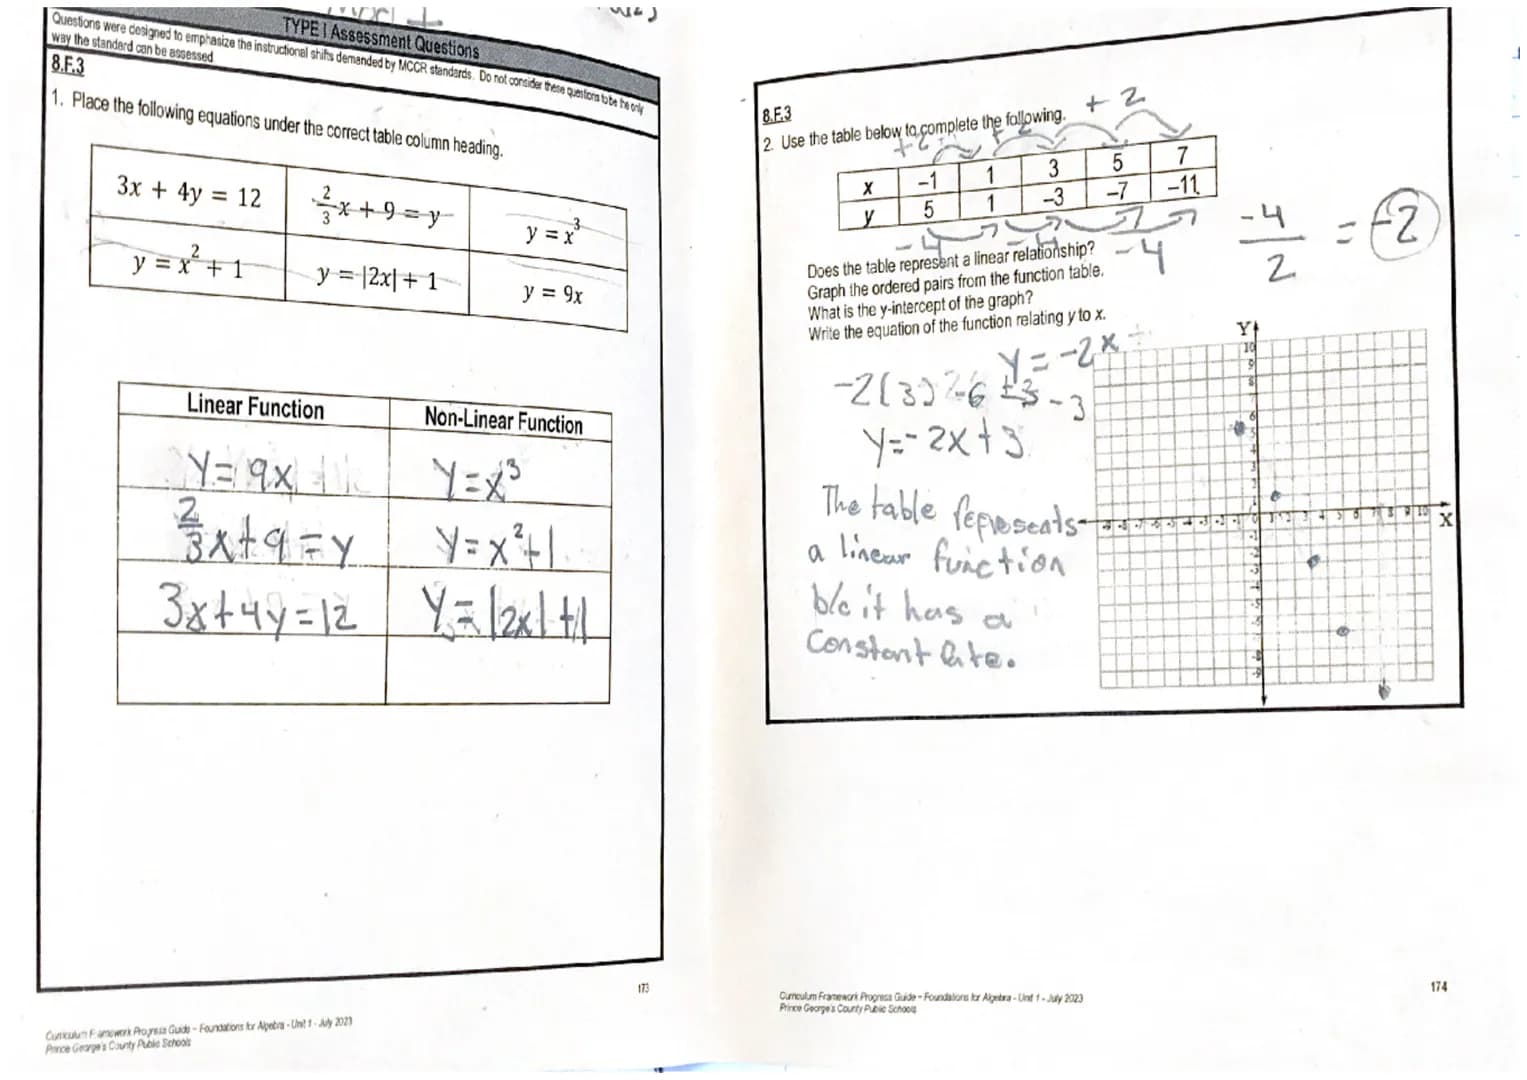 TYPE I Assessment Questions
Questions were designed to emphasize the instructional shifts demanded by MCCR standards. Do not consider these questions to be the only
way the standard can be assessed
8.F.3
1. Place the following equations under the correct table column heading.
3x + 4y = 12
2/3 x + 9 = y
y = x³
y = x² + 1
y = |2x| + 1
y = 9x
Linear Function
Non-Linear Function
y = 9x
y = x³
2/3 x + 9 = y
y = x² + 1
3x + 4y = 12
y = |2x| + 1
173
Curriculum Framework Progress Guide – Foundations for Algebra - Unit 1 - July 2023
Prince George's County Public Schools
8.F.3
+2
2. Use the table below to complete the following.
+2
+2
x -1 1 3 5 7
y 5 1 -3 -7 -11
-4
-4
-4
-4/2 = -2
Does the table represent a linear relationship?
Graph the ordered pairs from the function table.
What is the y-intercept of the graph?
Write the equation of the function relating y to x.
y = -2x +
-2(3) -6 +3 -3
y = -2x + 3
The table represents
a linear function
b/c it has a
constant rate.
Y
X
Curriculum Framework Progress Guide – Foundations for Algebra - Unit 1 - July 2023
Prince George's County Public Schools
174